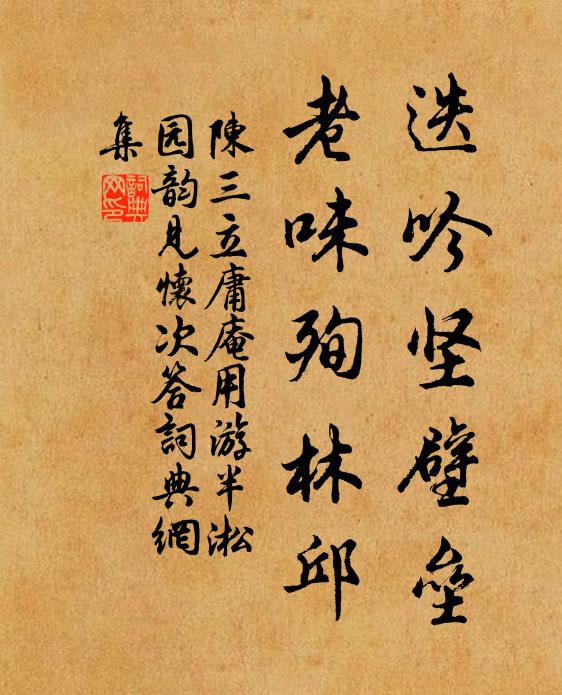 迭吟坚壁垒
老味殉林邱
陳三立庸庵用游半淞
园韵見懷次答詞典網
集
詞典网印